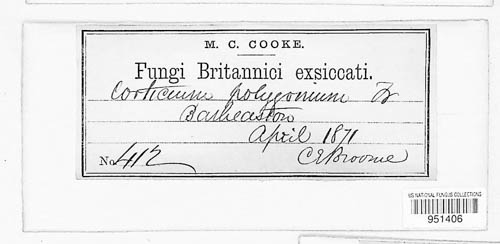 M. C. COOKE.
Fungi Britannici exsiccati.
Corticium polygonium Fr
Batheaston
April 1871
No. 412 CEBroome
US NATIONAL FUNGUS COLLECTIONS
951406